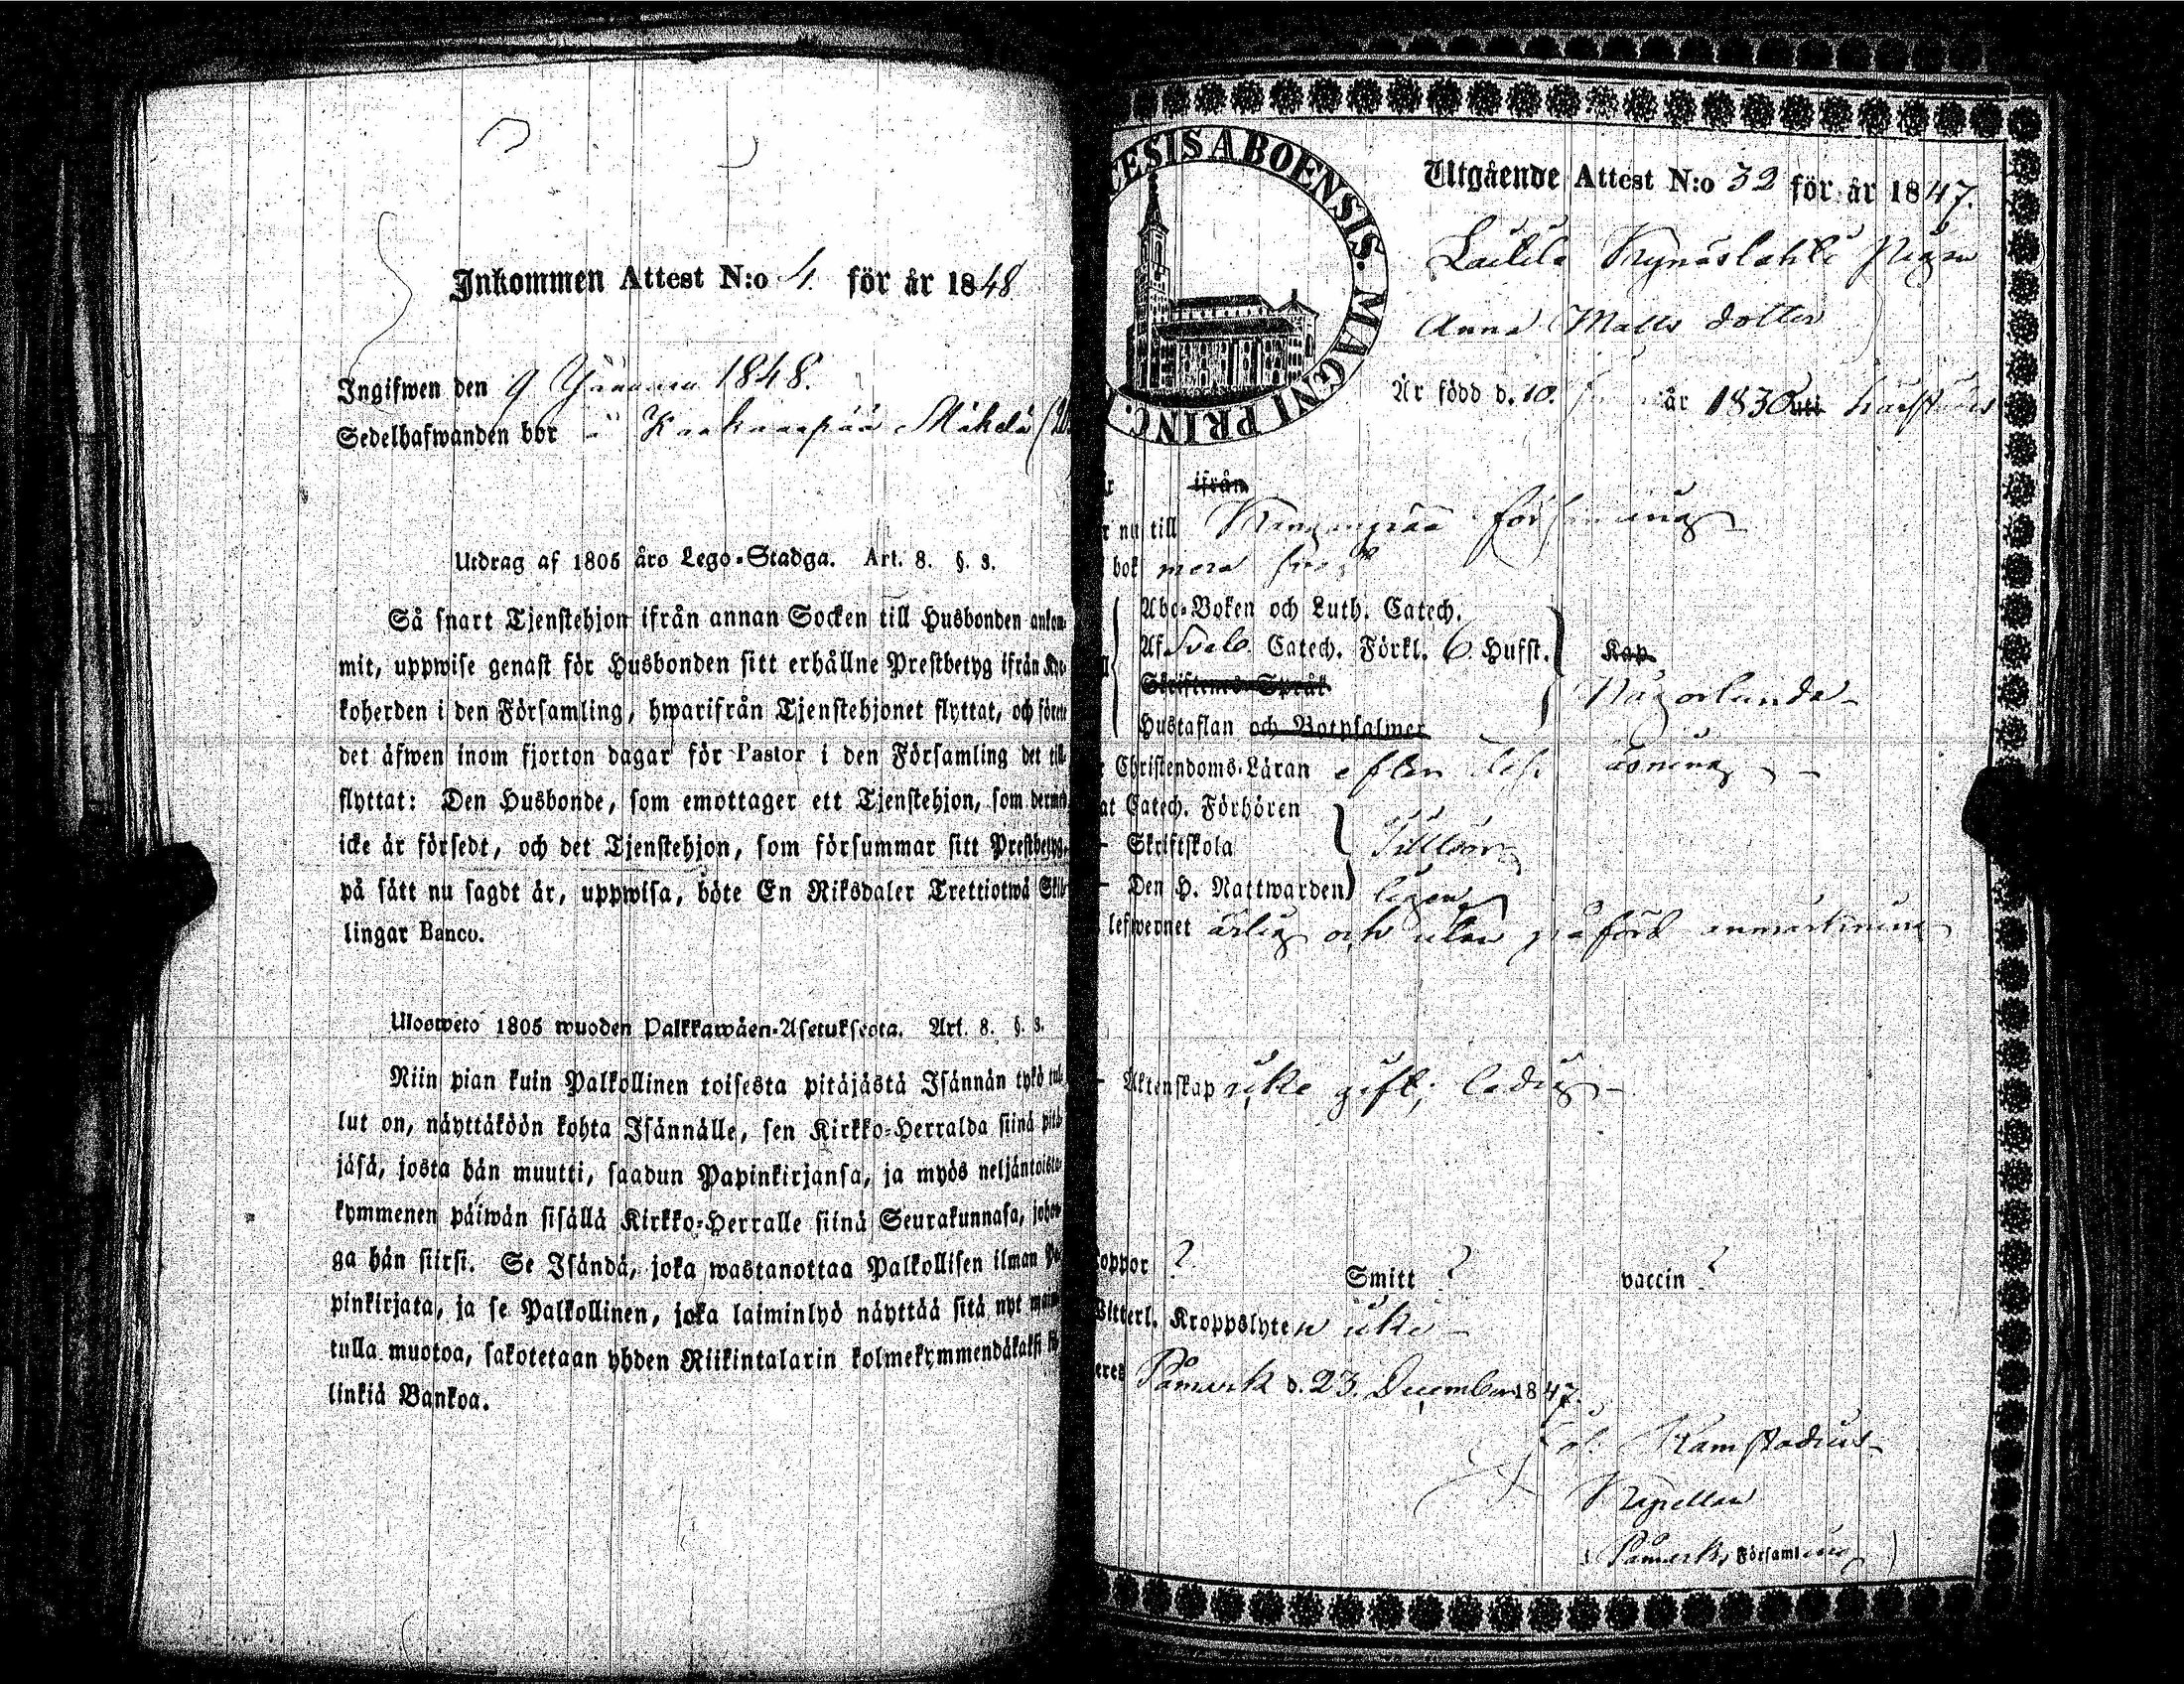 Inkommen Attest N:o 4 för år 1848
Ingifwen den 9 1848.
Sedelhafwanden bor å Kankaanpää
Utdrag af 1805 års Lego-Stadga. Art. 8. §. 3.
Så snart Tjenstehjon ifrån annan Socken till Husbonden ankom-
mit, uppwise genast för Husbonden sitt erhållne Prestbetyg ifrån Kyr-
koherden i den Församling, hwarifrån Tjenstehjonet flyttat, och förete
det äfwen inom fjorton dagar för Pastor i den Församling det till-
flyttat: Den Husbonde, som emottager ett Tjenstehjon, som dermed
icke är försedt, och det Tjenstehjon, som försummar sitt Prestbetyg,
på sätt nu sagdt är, uppwisa, böte En Riksdaler Trettiotwå Skil-
lingar Banco.
Ulosweto 1805 wuoden Palkkawäen-Asetuksesta. Art. 8. §. 3.
Niin pian kuin Palkollinen toisesta pitäjästä Isännän tykö tul-
lut on, näyttäköön kohta Isännälle, sen Kirkko-Herralda siinä pitä-
jäsä, josta hän muutti, saadun Papinkirjansa, ja myös neljäntoista-
kymmenen päiwän sisällä Kirkko-Herralle siinä Seurakunnasa, johon-
ga hän siirsi. Se Isändä, joka wastanottaa Palkollisen ilman Pa-
pinkirjata, ja se Palkollinen, joka laiminlyö näyttää sitä nyt
tulla muotoa, sakotetaan yhden Riikintalarin kolmekymmendäkaksi
linkiä Bankoa.
CESIS ABOENSIS. MAGNI PRINC.
Utgående Attest N:o 32 för år 1847.
Pigan
Anna Matts dotter
Är född d. 10. år 1830 uti
ifrån
nu till Kankanpää församling
bok
Abc-Boken och Luth. Catech.
Af Sveb. Catech. Förkl. 6 Hufst. Kap.
Skriftenes Språk
Någorlunda
Hustaflan och Botpsalmer
Christendoms-Läran efter
at Catech. Förhören
Skriftskola
Den H. Nattwarden
lefwernet ärlig och utan påförd anmärkning
Äktenskap icke gift; ledig
koppor ? Smitt ? vaccin ?
Witterl. Kroppslyten icke
Påmark d. 23. December 1847.
Kapellan
Påmarks Församling